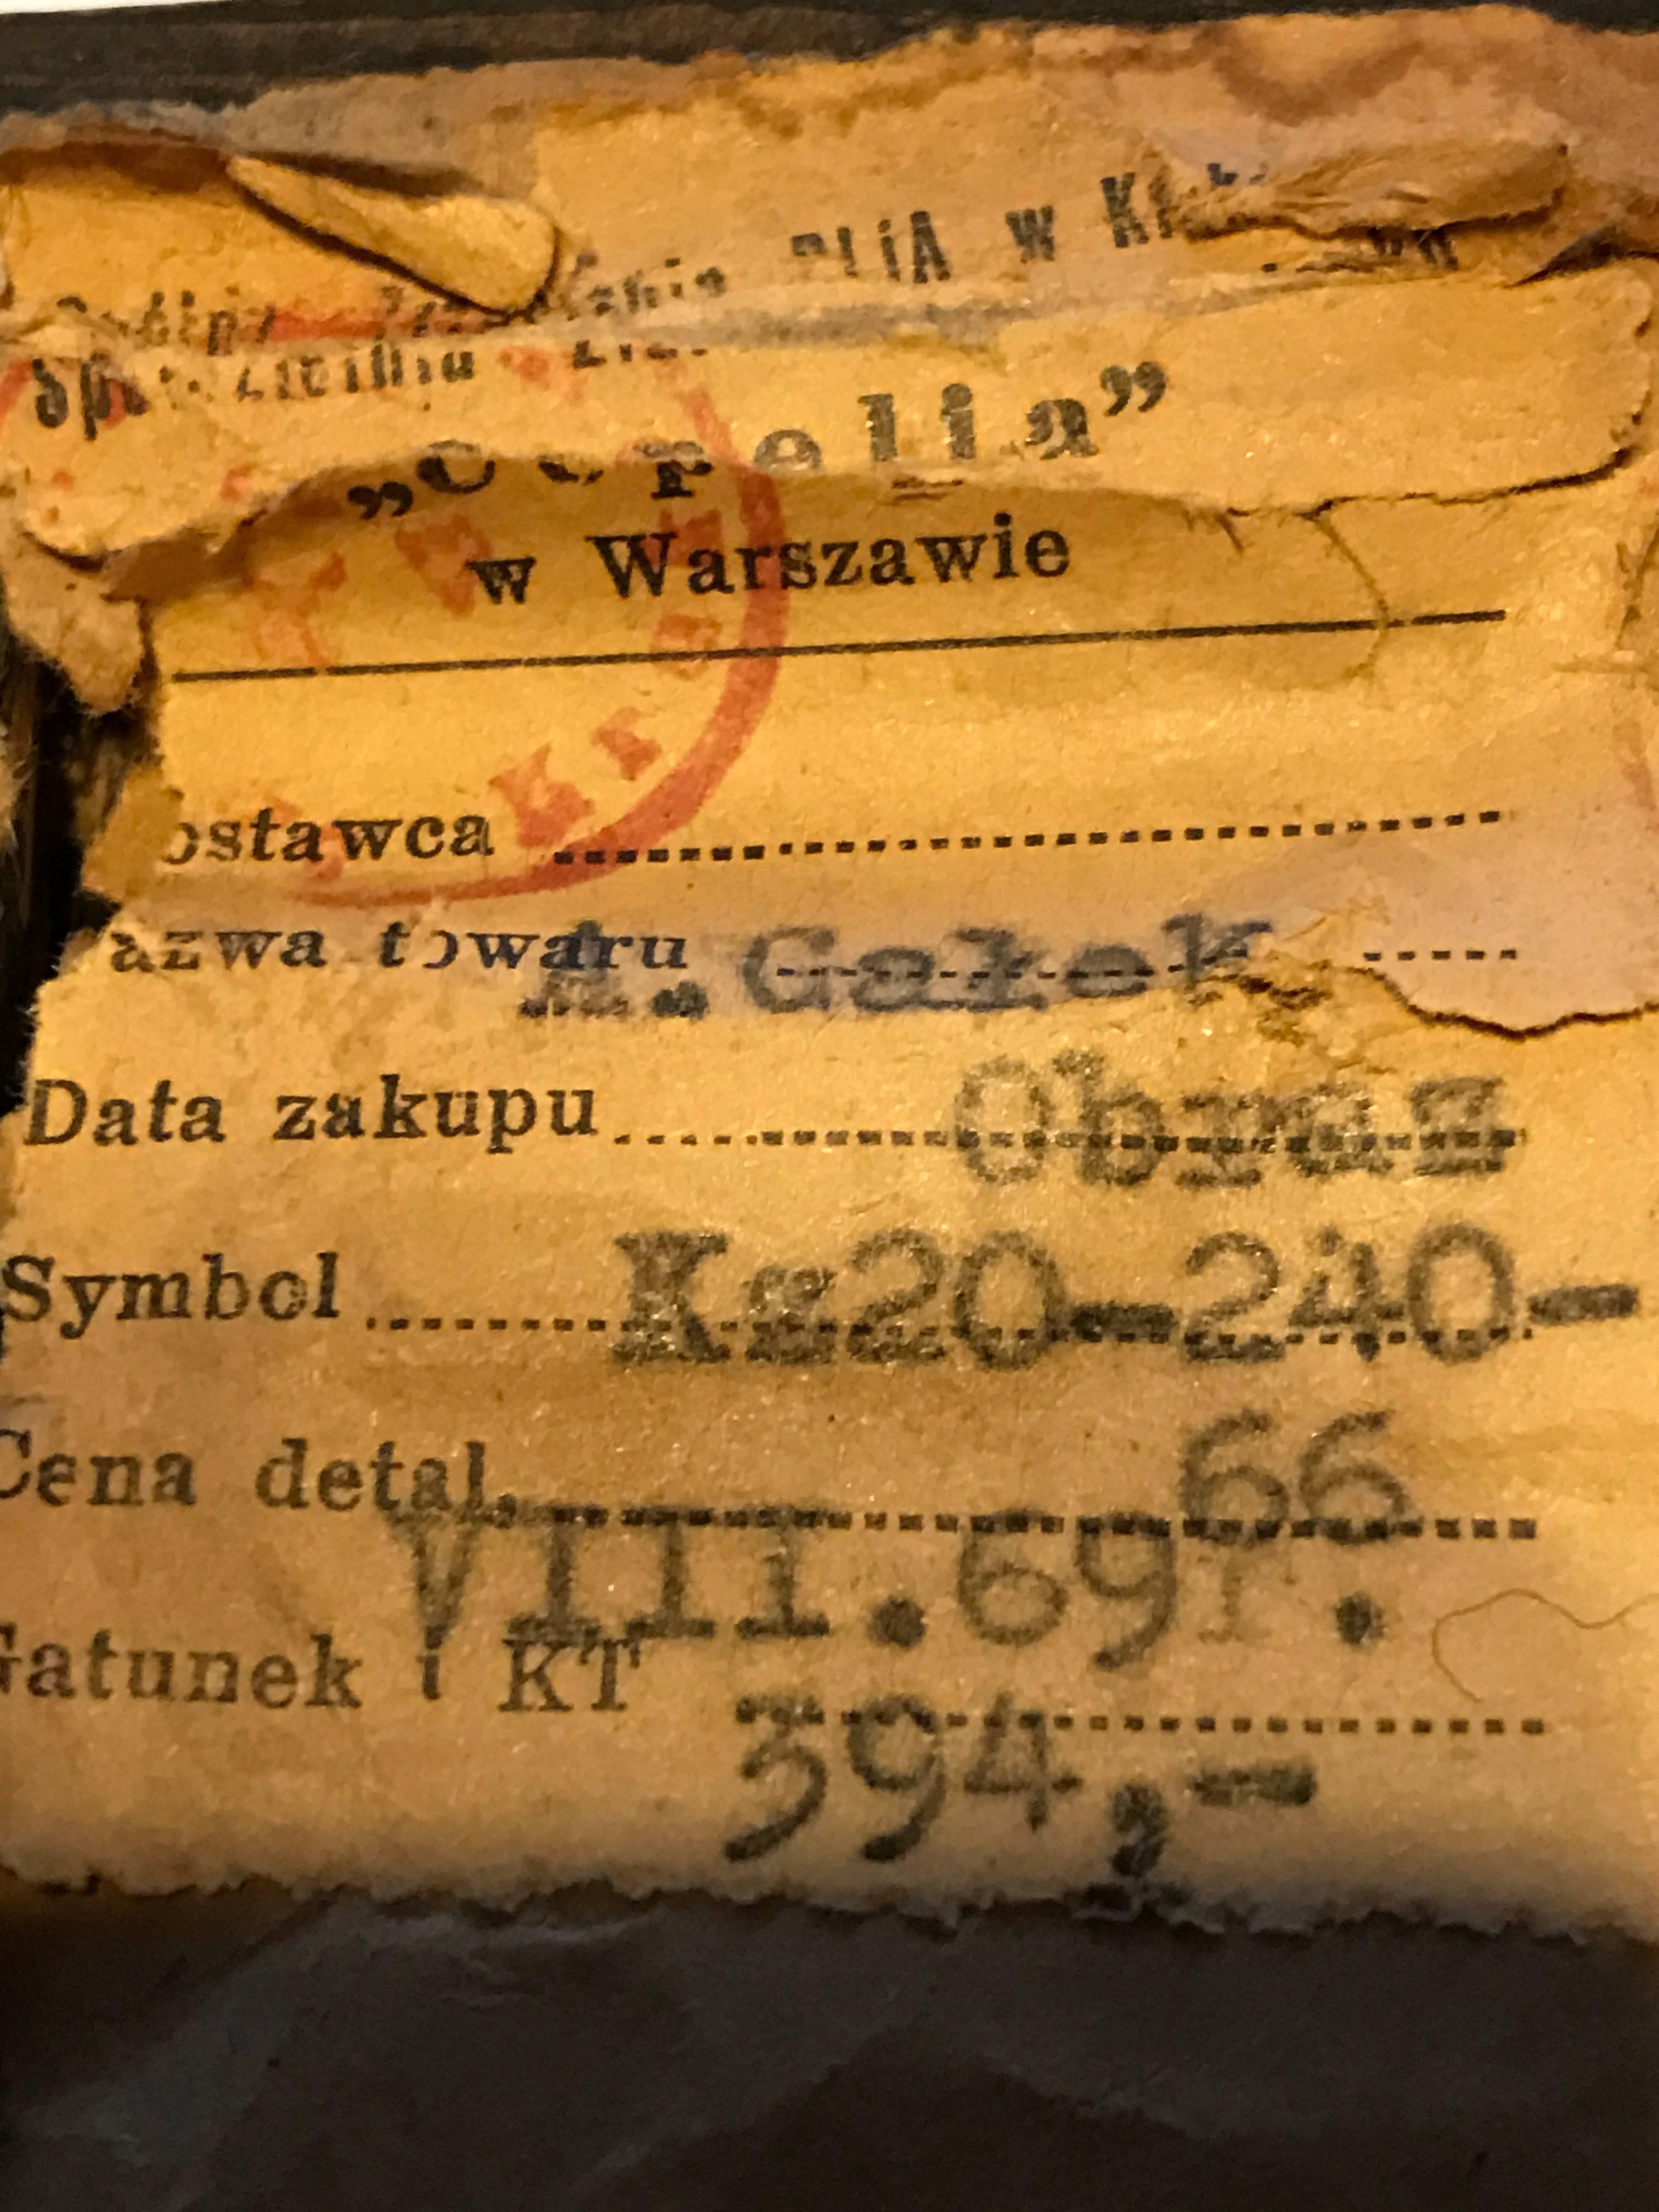 w
„Cepelia”
w Warszawie
ostawca
azwa towaru
A. Gałek
Data zakupu
Obraz
Symbol
Kz20-240-
66
Cena detal.
VIII.69r.
Gatunek i KT
394,-